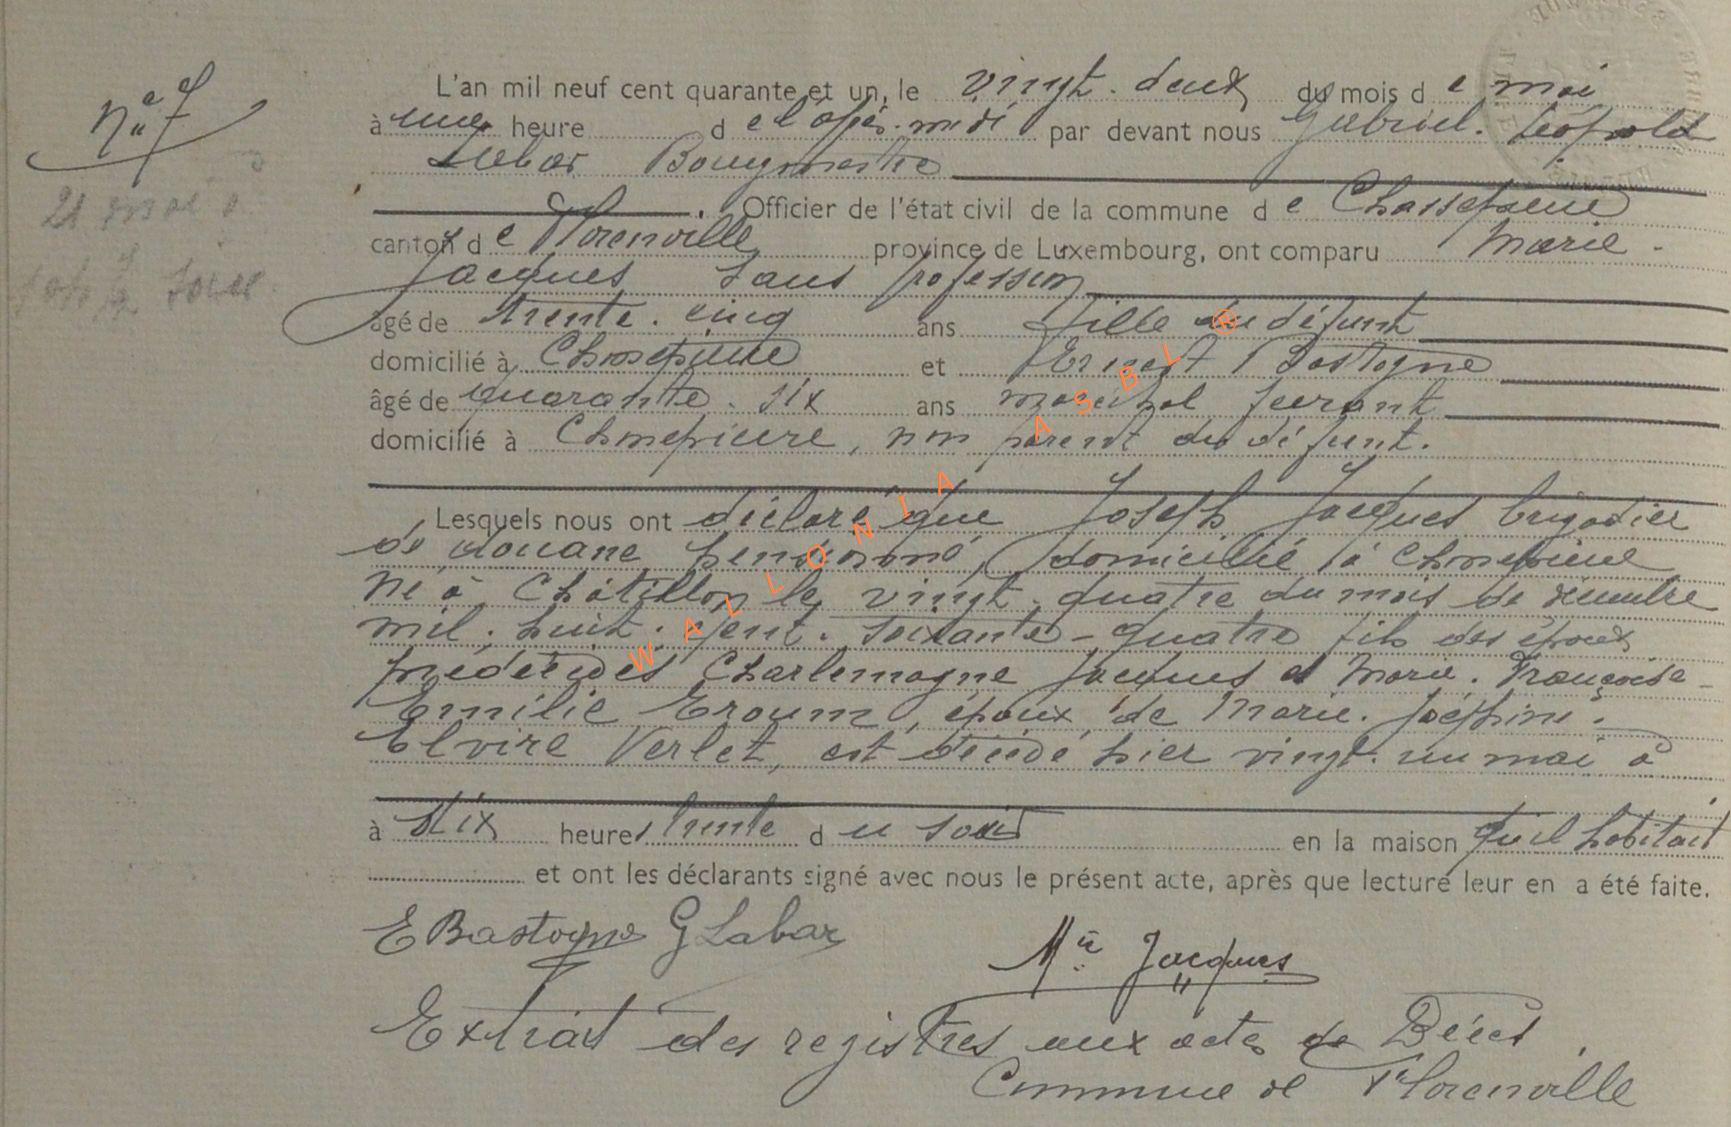 N° 7
21 mai
L'an mil neuf cent quarante et un, le vingt-deux du mois de mai
à une heure de l'après-midi par devant nous Gabriel-Léopold
Labar Bourgmestre
Officier de l'état civil de la commune de Chassepierre
canton de Florenville province de Luxembourg, ont comparu Marie-
Jacques sans profession
âgé de trente-cinq ans fille du défunt
domicilié à Chassepierre et Ernest Bastogne
âgé de quarante-six ans maréchal ferrant
domicilié à Chassepierre, non parent du défunt.
Lesquels nous ont déclaré que Joseph Jacques brigadier
de douane pensionné, domicilié à Chassepierre
né à Châtillon le vingt-quatre du mois de décembre
mil-huit-cent-soixante-quatre fils des époux
prédécédés Charlemagne Jacques et Marie-Françoise-
Emilie Eroum, époux de Marie-Joséphine-
Elvire Verlet, est décédé hier vingt-un mai à
à dix heures trente du soir en la maison qu'il habitait
et ont les déclarants signé avec nous le présent acte, après que lecture leur en a été faite.
E Bastogne G Labar Mie Jacques
Extrait des registres aux actes de Décès
Commune de Florenville
WALLONIA ASBL ®